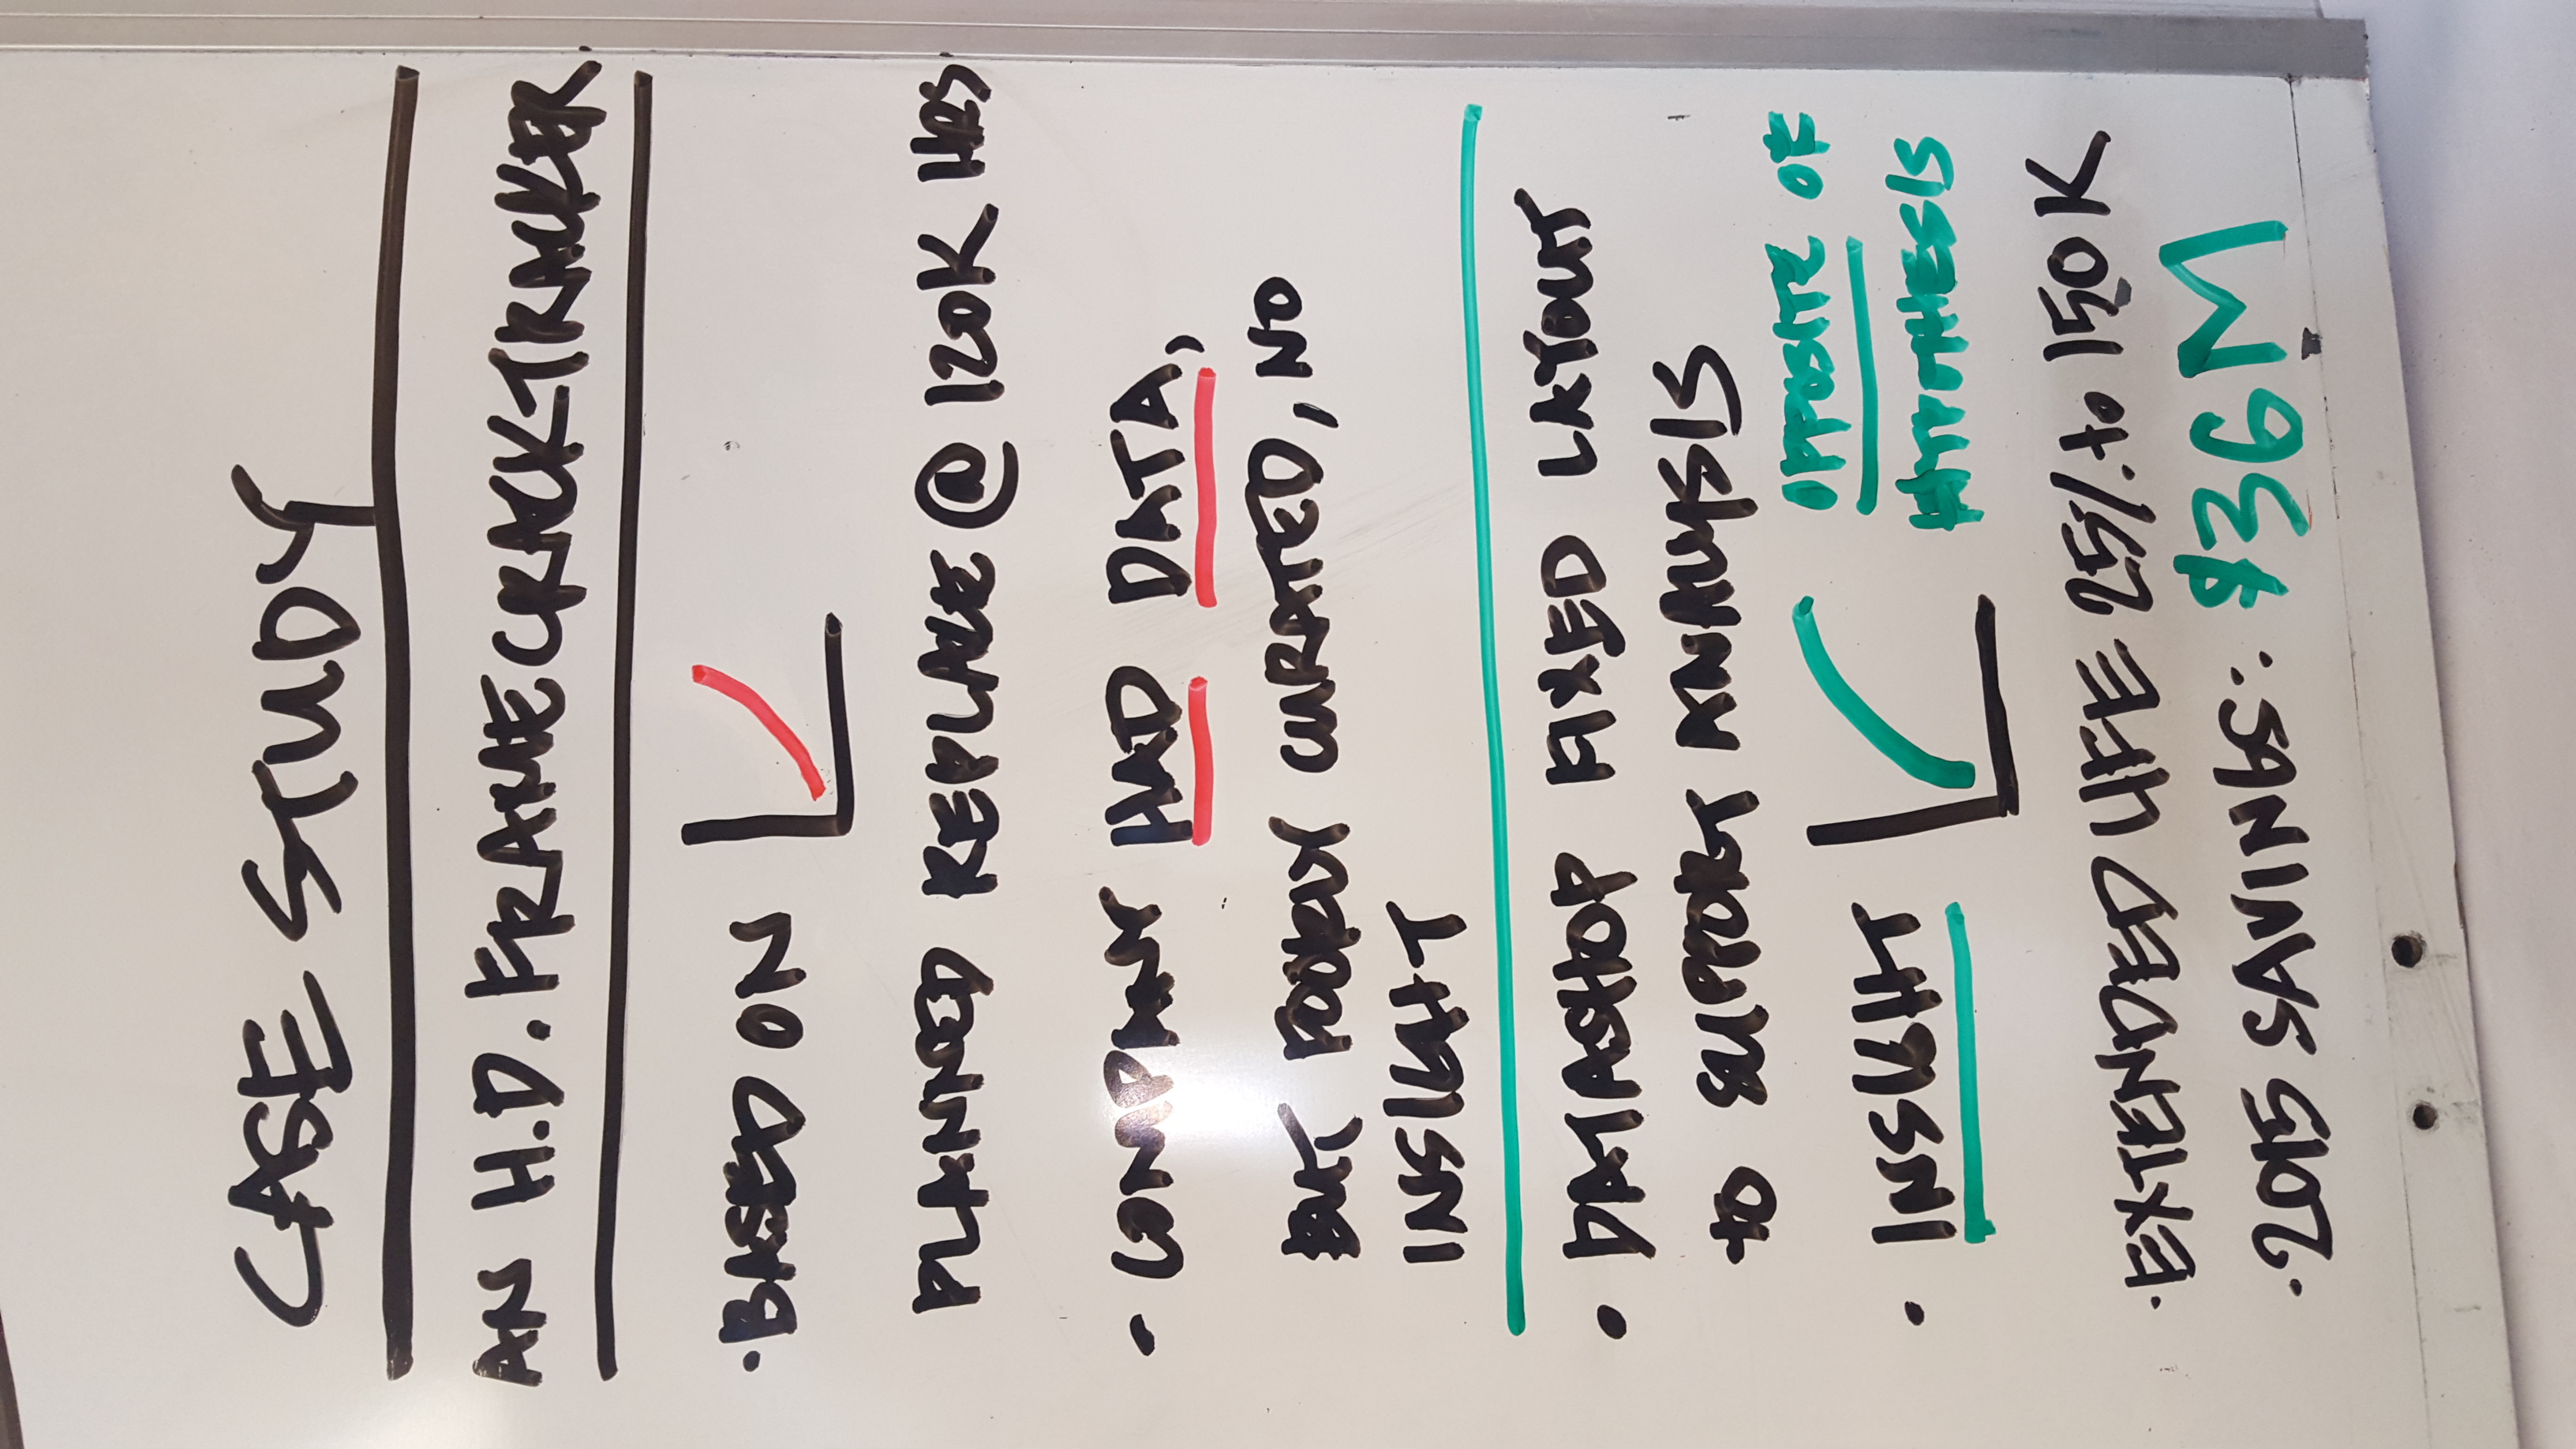 CASE STUDY
AN H.D. FRAMECRACKTRACKER
• BASED ON
PLANNED REPLACE @ 120K HRS
- COMPANY HAD DATA,
BUT POORLY CURATED, NO
INSIGHT
• DATASHOP FIXED LAYOUT
to SUPPORT ANALYSIS
• INSIGHT
OPPOSITE OF
HYPOTHESIS
• EXTENDED LIFE 25% to 150K
• 2015 SAVINGS: $36M